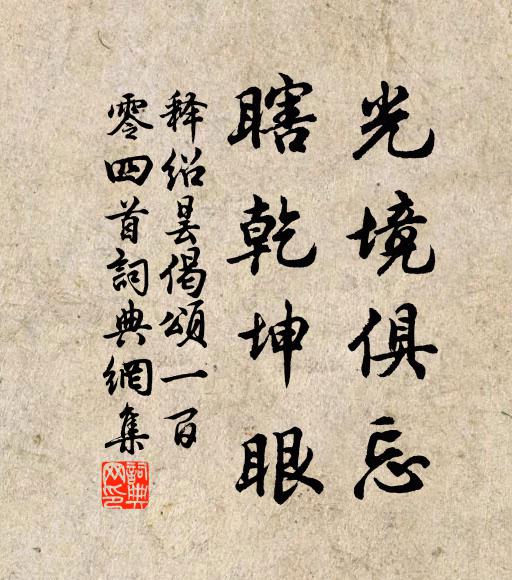 光境俱忘
瞎乾坤眼
释绍昙偈頌一百
零四首詞典網集
詞典网印